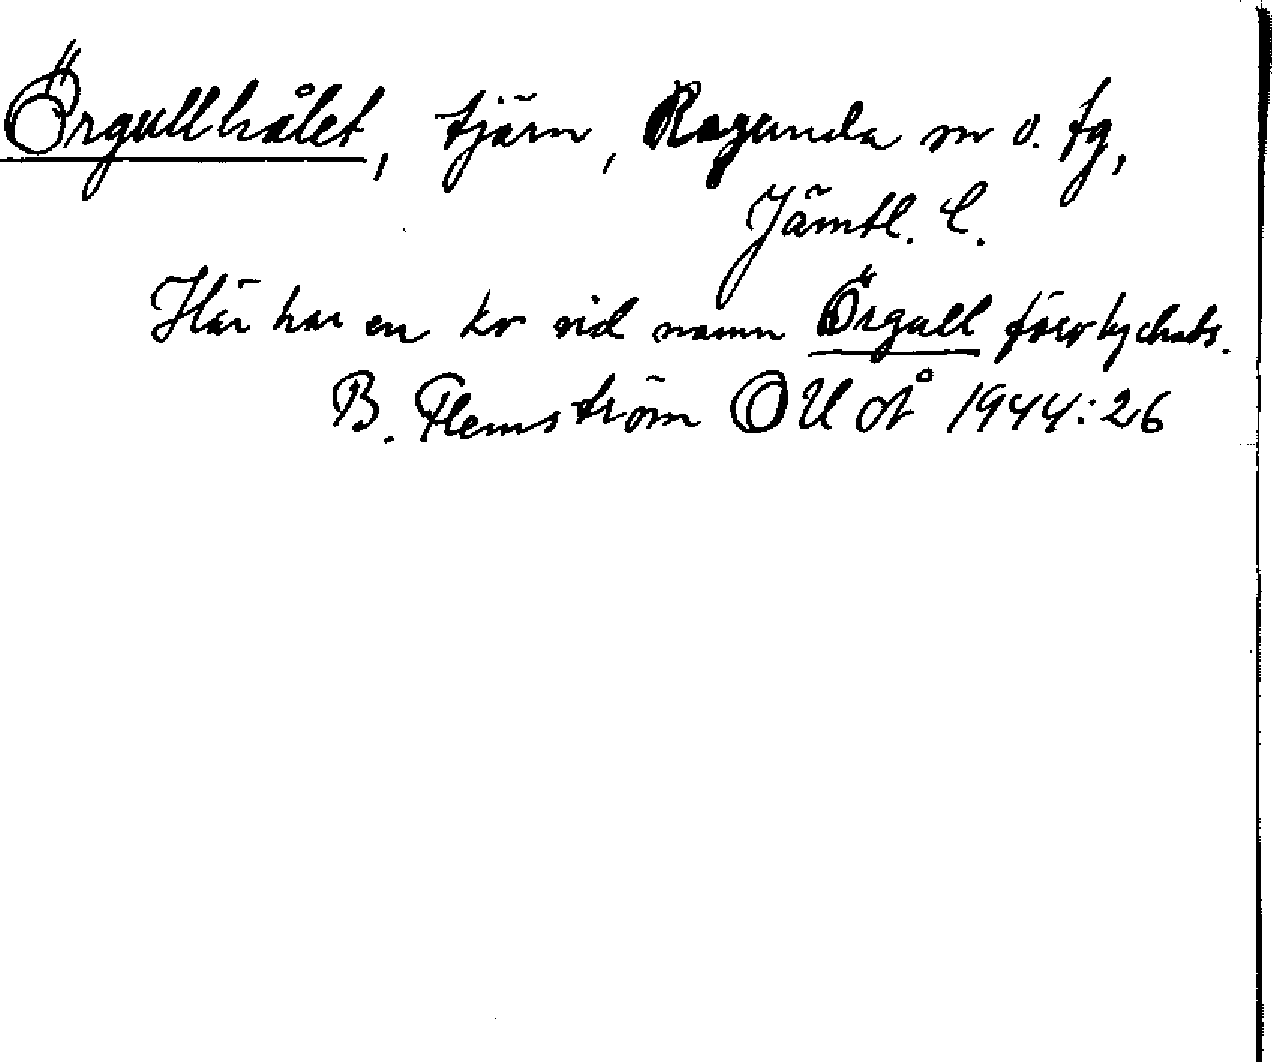 Örgullhålet, tjärn, Ragunda sn o. tg,
Jämtl. l.
Här har en ko vid namn Örgull förolyckats.
B. Flemström OUÅ 1944:26